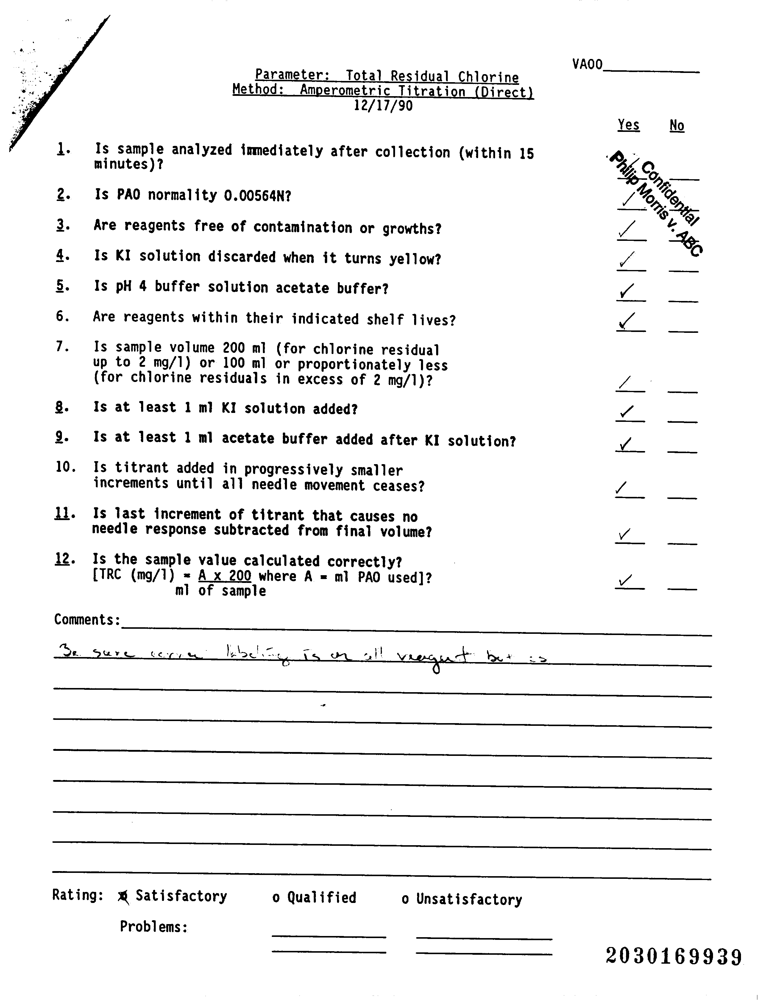 VA00
Parameter: Total Residual Chlorine
Method: Amperometric Titration (Direct)
12/17/90
Yes No
1. Is sample analyzed immediately after collection (within 15
minutes)?
Confidential
Philip Morris v. ABC
2. Is PAO normality 0.00564N?
3. Are reagents free of contamination or growths?
4. Is KI solution discarded when it turns yellow?
5. Is pH 4 buffer solution acetate buffer?
6. Are reagents within their indicated shelf lives?
7. Is sample volume 200 ml (for chlorine residual
up to 2 mg/l) or 100 ml or proportionately less
(for chlorine residuals in excess of 2 mg/l)?
8. Is at least 1 ml KI solution added?
9. Is at least 1 ml acetate buffer added after KI solution?
10. Is titrant added in progressively smaller
increments until all needle movement ceases?
11. Is last increment of titrant that causes no
needle response subtracted from final volume?
12. Is the sample value calculated correctly?
[TRC (mg/l) = A x 200 where A = ml PAO used]?
ml of sample
Comments:
Be sure labeling is on all reagent
Rating: Satisfactory o Qualified o Unsatisfactory
Problems:
2030169939